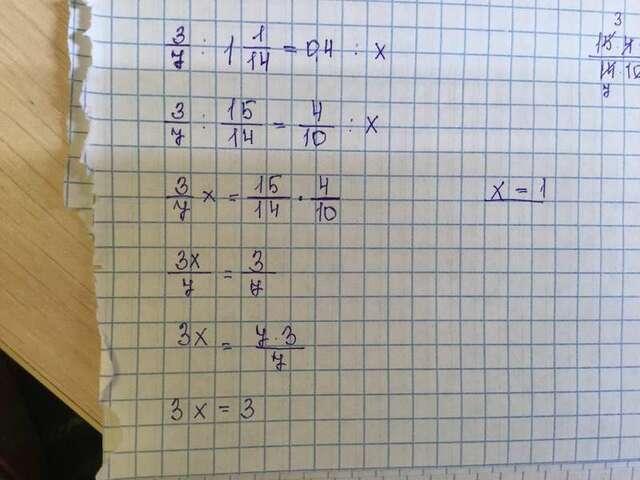 3/7 : 1 1/14 = 0,4 : x
3/7 : 15/14 = 4/10 : x
3/7 x = 15/14 · 4/10
3x/7 = 3/7
3x = 7·3/7
3x = 3
x = 1
3
15·4/14·10
7